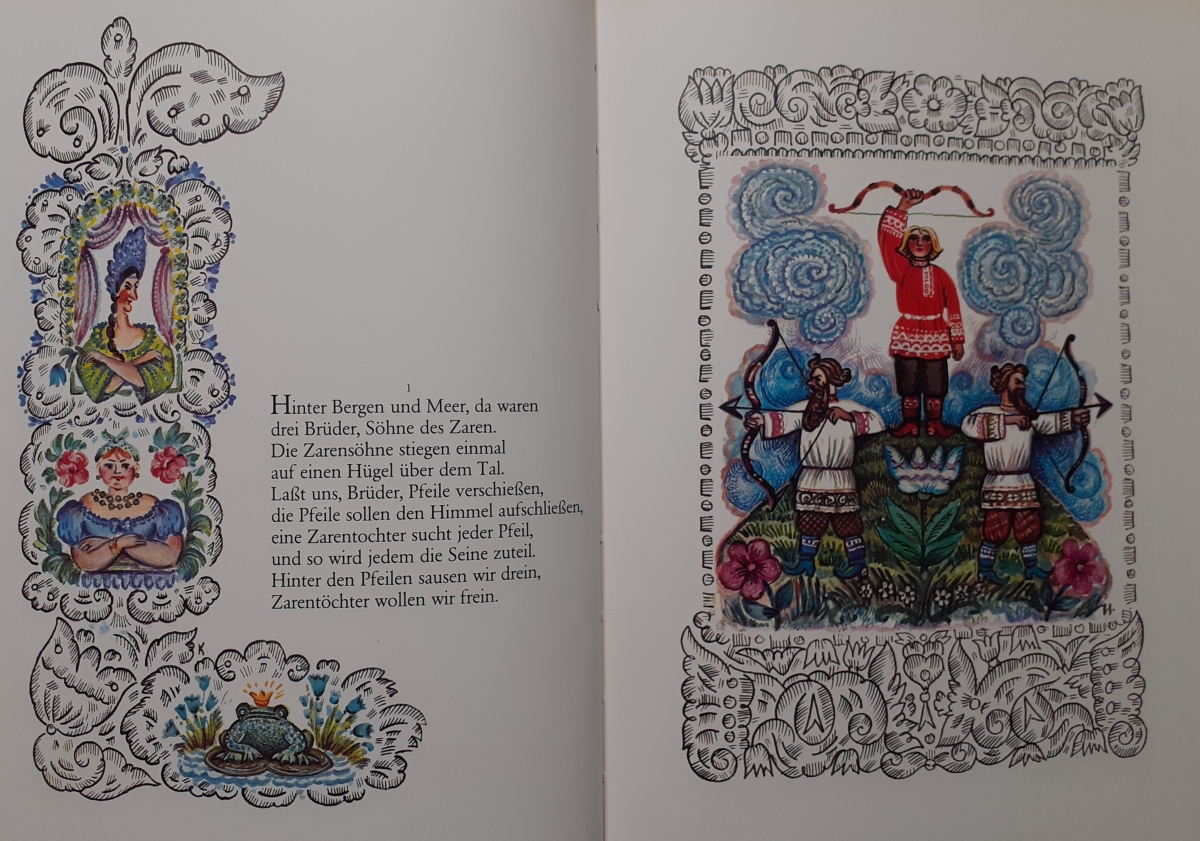 1
Hinter Bergen und Meer, da waren
drei Brüder, Söhne des Zaren.
Die Zarensöhne stiegen einmal
auf einen Hügel über dem Tal.
Laßt uns, Brüder, Pfeile verschießen,
die Pfeile sollen den Himmel aufschließen,
eine Zarentochter sucht jeder Pfeil,
und so wird jedem die Seine zuteil.
Hinter den Pfeilen sausen wir drein,
Zarentöchter wollen wir frein.
К
И